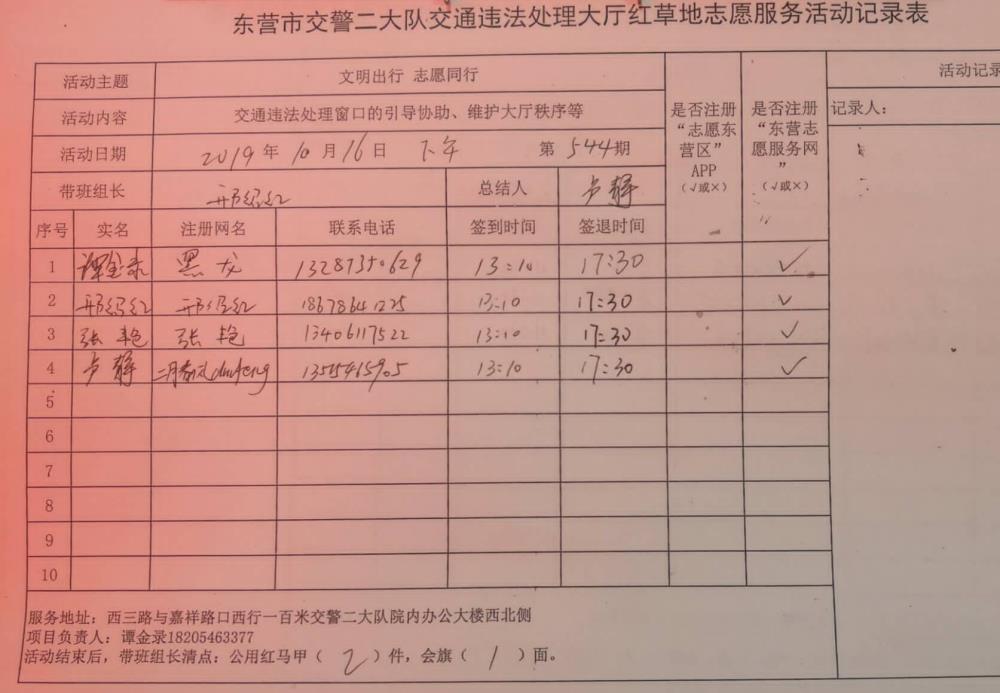 东营市交警二大队交通违法处理大厅红草地志愿服务活动记录表
活动主题 文明出行 志愿同行
活动内容 交通违法处理窗口的引导协助、维护大厅秩序等
活动日期 2019年10月16日 下午 第544期
带班组长 邢绍红 总结人 卢静
是否注册“志愿东营区”APP（√或×）
是否注册“东营志愿服务网”（√或×）
活动记录
记录人：
序号 实名 注册网名 联系电话 签到时间 签退时间
1 谭金录 黑龙 13287350629 13:10 17:30 ✓
2 邢绍红 邢绍红 18678641225 13:10 17:30 ✓
3 张艳 张艳 13406117522 13:10 17:30 ✓
4 卢静 二月春风 13:10 17:30 ✓
5
6
7
8
9
10
服务地址：西三路与嘉祥路口西行一百米交警二大队院内办公大楼西北侧
项目负责人：谭金录18205463377
活动结束后，带班组长清点：公用红马甲（2）件，会旗（1）面。